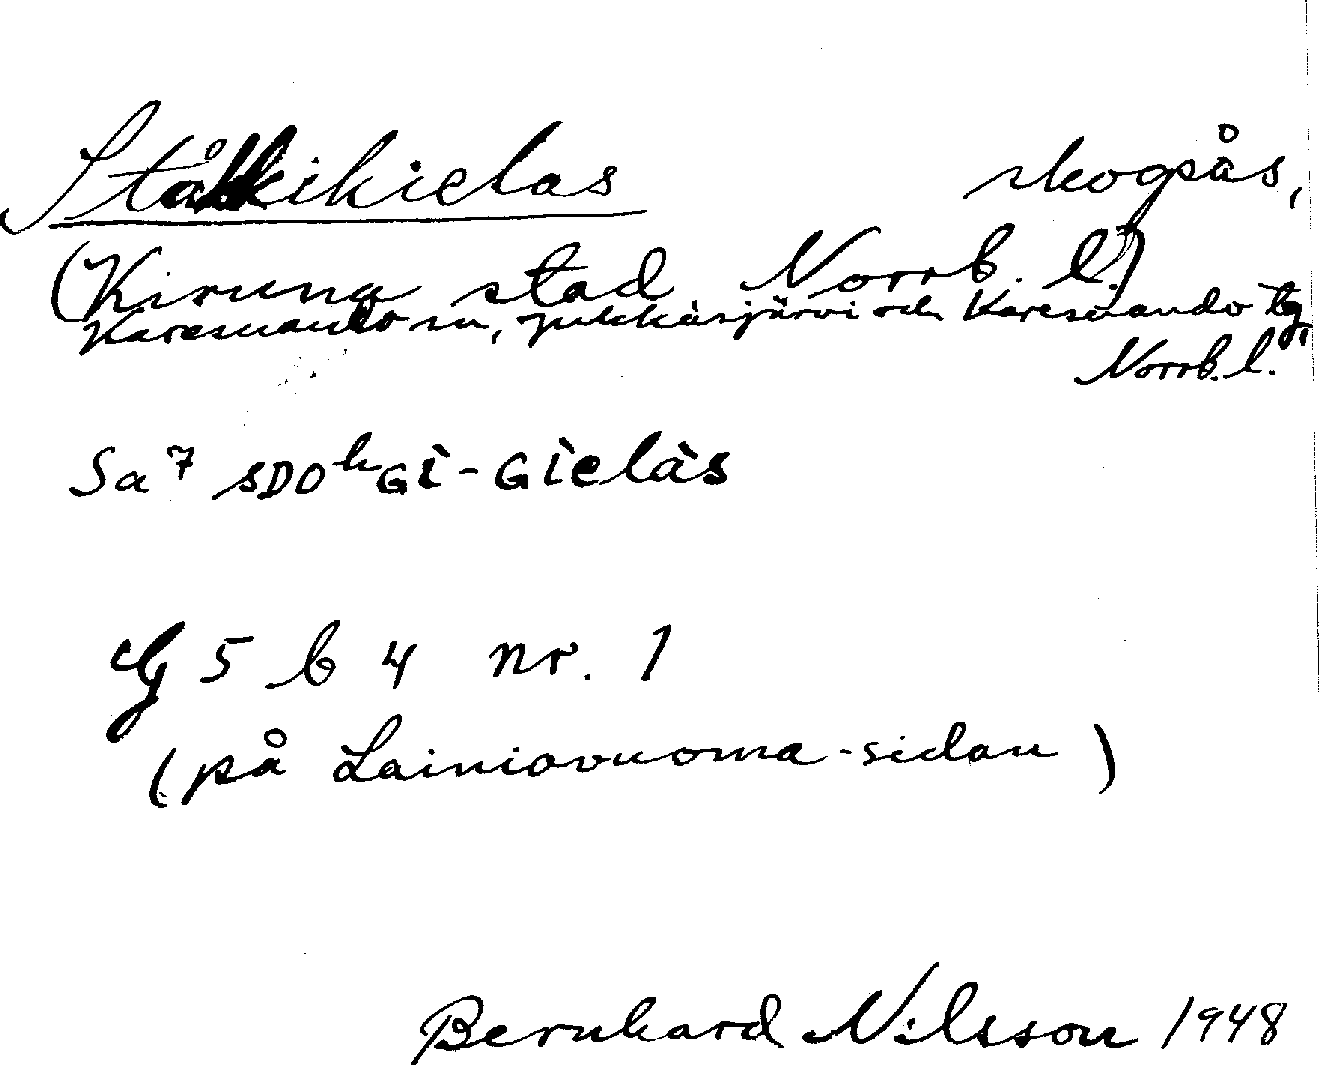 Ståkkikielas skogsås,
(Kiruna stad Norrb. l.)
Karesuando sn, Jukkasjärvi och Karesuando tg,
Norrb. l.
Sa 7 SDOʰGì-Gìelàs
G 5 b 4 nr. 1
(på Lainiovuoma-sidan)
Bernhard Nilsson 1948